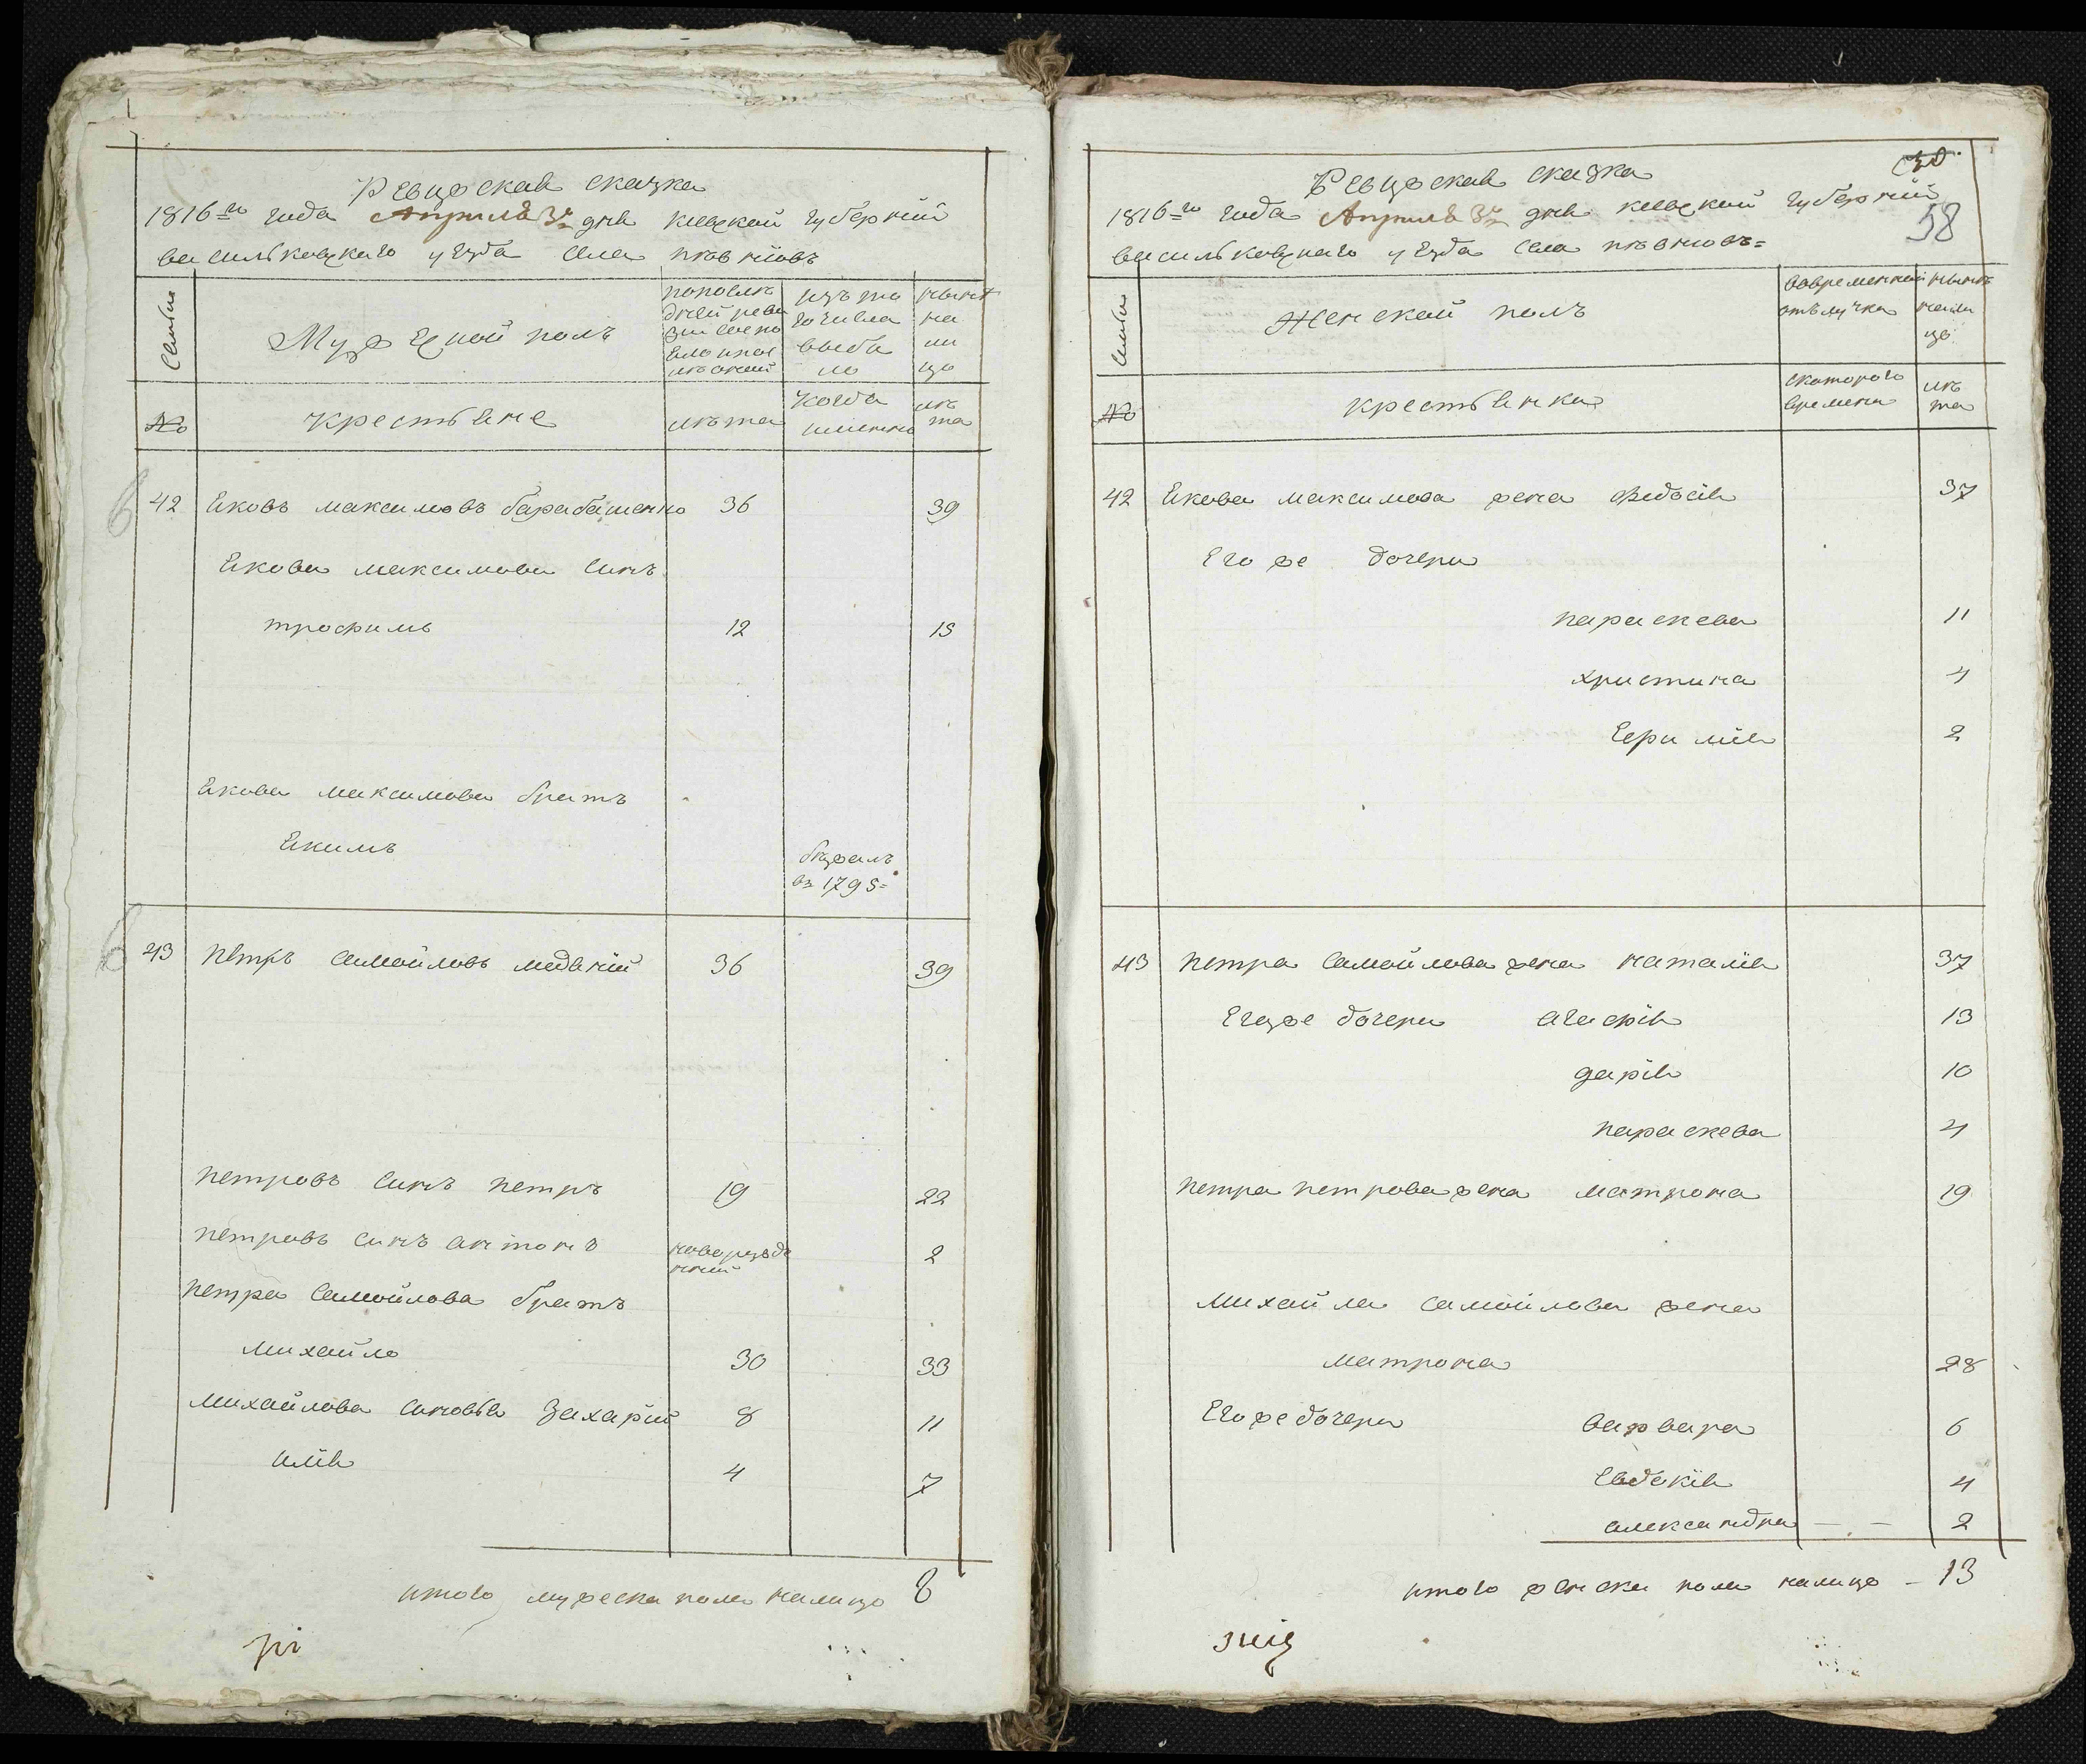 Ревизская сказка
1816го года Апреля 3го дня киевской губернии
васильковского уезда села
Семьи
Мужеской полъ
последней ревизии состояло и после оной
изъ того числа выбыло
ныне на лицо
№
крестьяне
лета
когда именно
лета
42 Яковъ максимовъ барабашенко 36 39
Якова максимова синъ
трофимъ 12 15
Якова максимова братъ
Якимъ
бежалъ
въ 1795=
43 Петръ Самойловъ медяній 36 39
Петровъ синъ Петръ 19 22
Петровъ синъ антонъ новорожденний 2
Петра Самойлова братъ
михайло 30 33
Михайлова синовья Захарій 8 11
илія 4 7
итого мужеска пола налицо 8
Ревизская сказка
58
1816го года Апреля 3го дня киевской губернии
васильковского уезда села
Семьи
Женской полъ
во временной отълучке
ныне налицо
№
крестьянки
скоторого времени
лета
42 Якова максимова жена Федосія 37
Его же дочери
параскева 11
христина 4
2
43 Петра Самойлова жена наталія 37
Егоже дочери агафія 13
дарія 10
параскева 4
Петра петрова жена матрона 19
Михайла самойлова жена
матрона 28
Егоже дочери варвара 6
Евдокія 4
александра — . — 2
итого женска пола налицо – 13